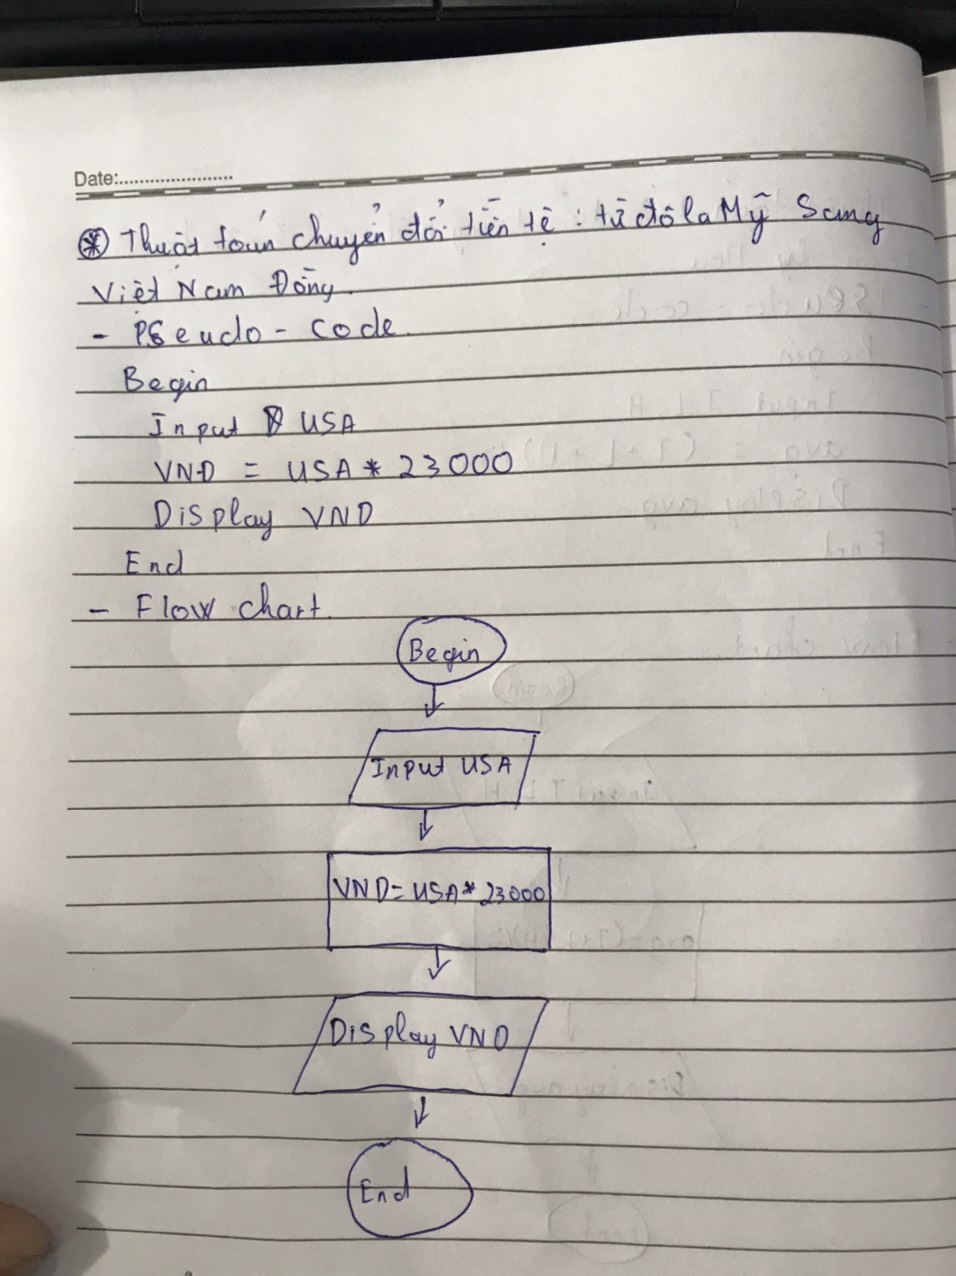 Date:......................
Thuật toán chuyển đổi tiền tệ : từ đôla Mỹ Sang
Việt Nam Đồng.
- Pseudo - code.
Begin
Input USA
VNĐ = USA * 23000
Display VND
End
- Flow chart.
Begin
Input USA
VND = USA * 23000
Display VND
End